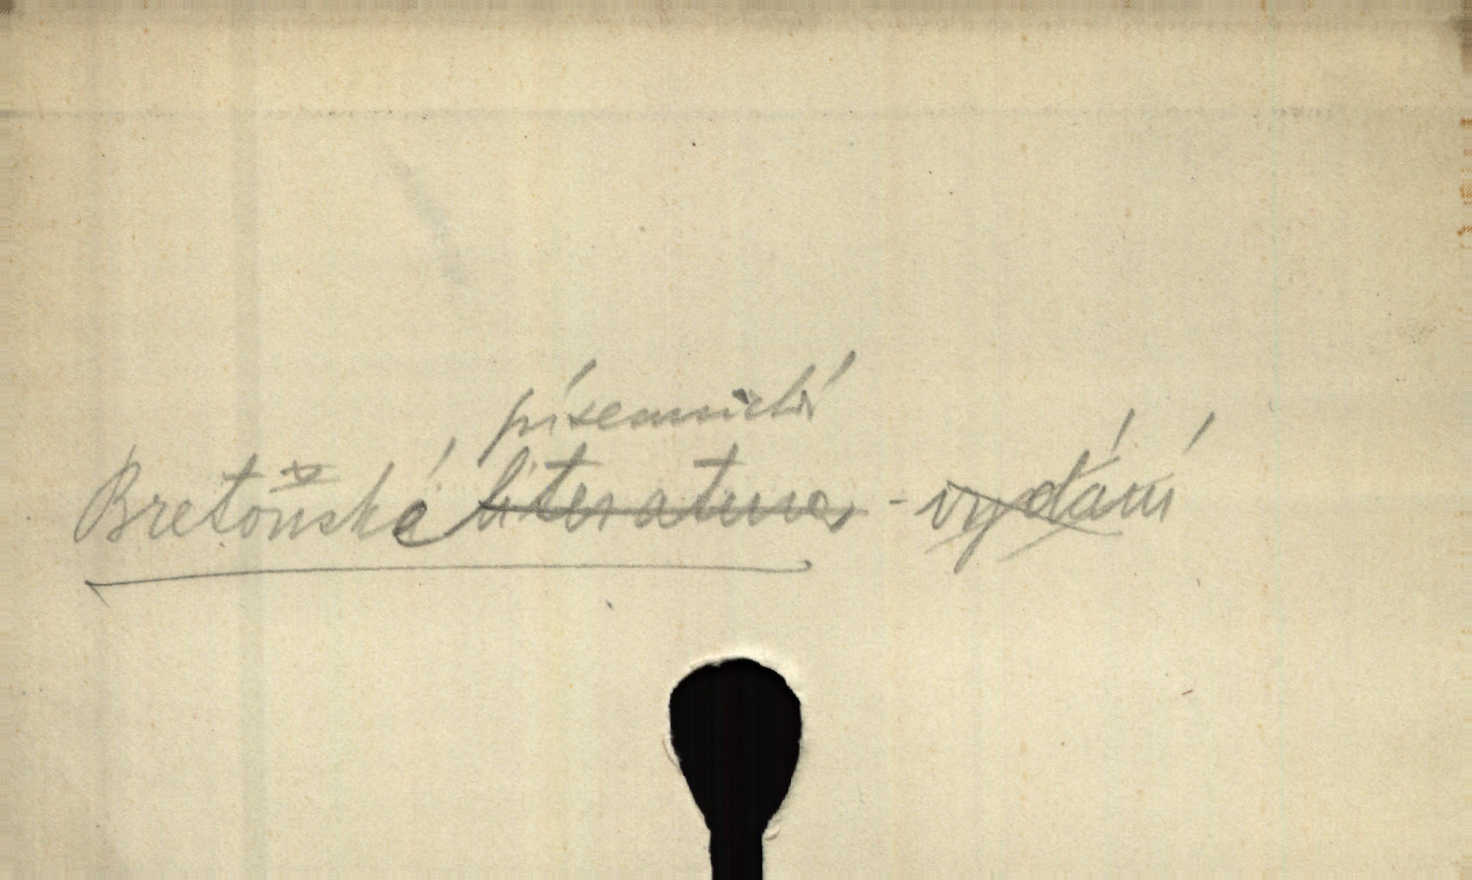 písemnictví
Bretoňské literatura - vydání